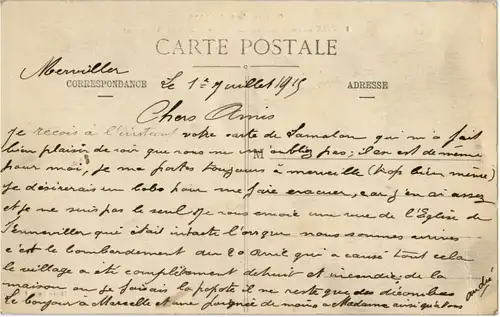 CARTE POSTALE
Merviller Le 1er Juillet 1915
CORRESPONDANCE ADRESSE
Chers Amis
Je reçois à l'instant votre carte de qui m'a fait
bien plaisir de voir que vous ne m'oubliez pas; il en est de même
M
pour moi, je me porte toujours à merveille (trop bien même)
je désirerais un bobo pour me faire évacuer, car j'en ai assez
et je ne suis pas le seul. Je vous envoie une vue de l'Église de
qui était intacte lorsque nous sommes arrivés
c'est le bombardement du 20 avril qui a causé tout cela
le village a été complètement détruit et incendié; de la
maison ou je faisais la popote il ne reste que des décombres
Le bonjour à Marcelle et une poignée de mains a Madame ainsi qu'à vous
André